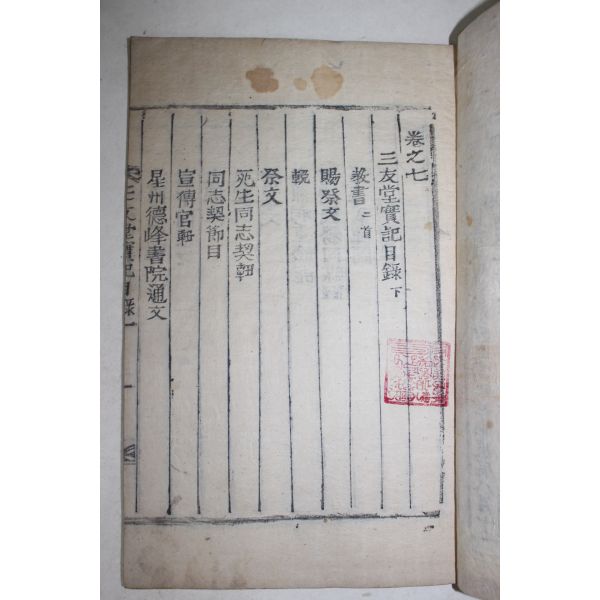 卷之七
三友堂實記目錄 下
敎書 二首
賜祭文
輓
祭文
死生同志契軸
同志契節目
宣傳官
星州德峰書院通文
三友堂實記目錄 一